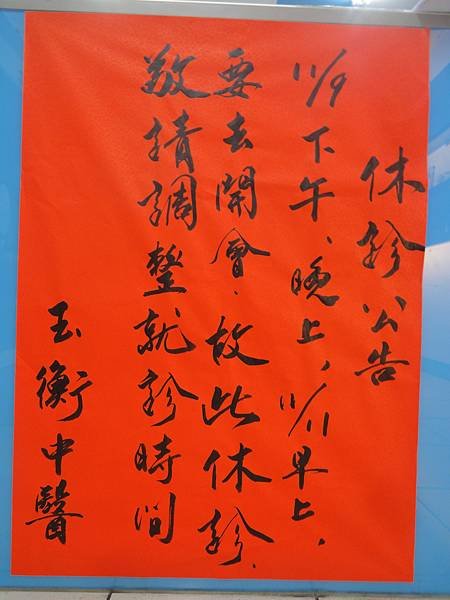 休診公告
11/9下午、晚上，11/11早上，
要去開會，故此休診，
敬請調整就診時間
玉衡中醫